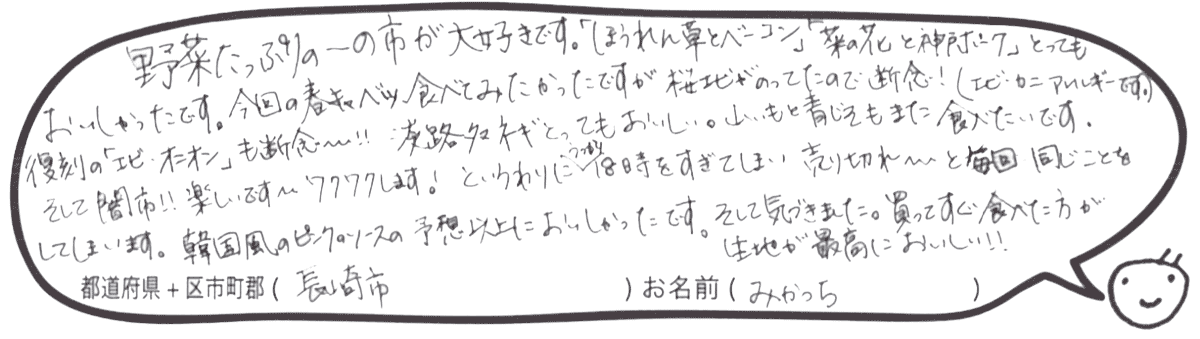 野菜たっぷりの一の市が大好きです。「ほうれん草とベーコン」「菜の花と神戸ポーク」とっても
おいしかったです。今回の春キャベツ食べてみたかったですが桜エビがのってたので断念！（エビ・カニアレルギーです。）
復刻の「エビ・オニオン」も断念〜!! 淡路タマネギとってもおいしい。山いもと青じそもまた食べたいです。
そして闇市!! 楽しいです〜ワクワクします！というわりにうっかり18時をすぎてしまい売り切れ〜と毎回同じことを
してしまいます。韓国風のピンクのソースの予想以上においしかったです。そして気づきました。買ってすぐ食べた方が
生地が最高においしい!!
都道府県＋区市町郡（長崎市）お名前（みかっち）